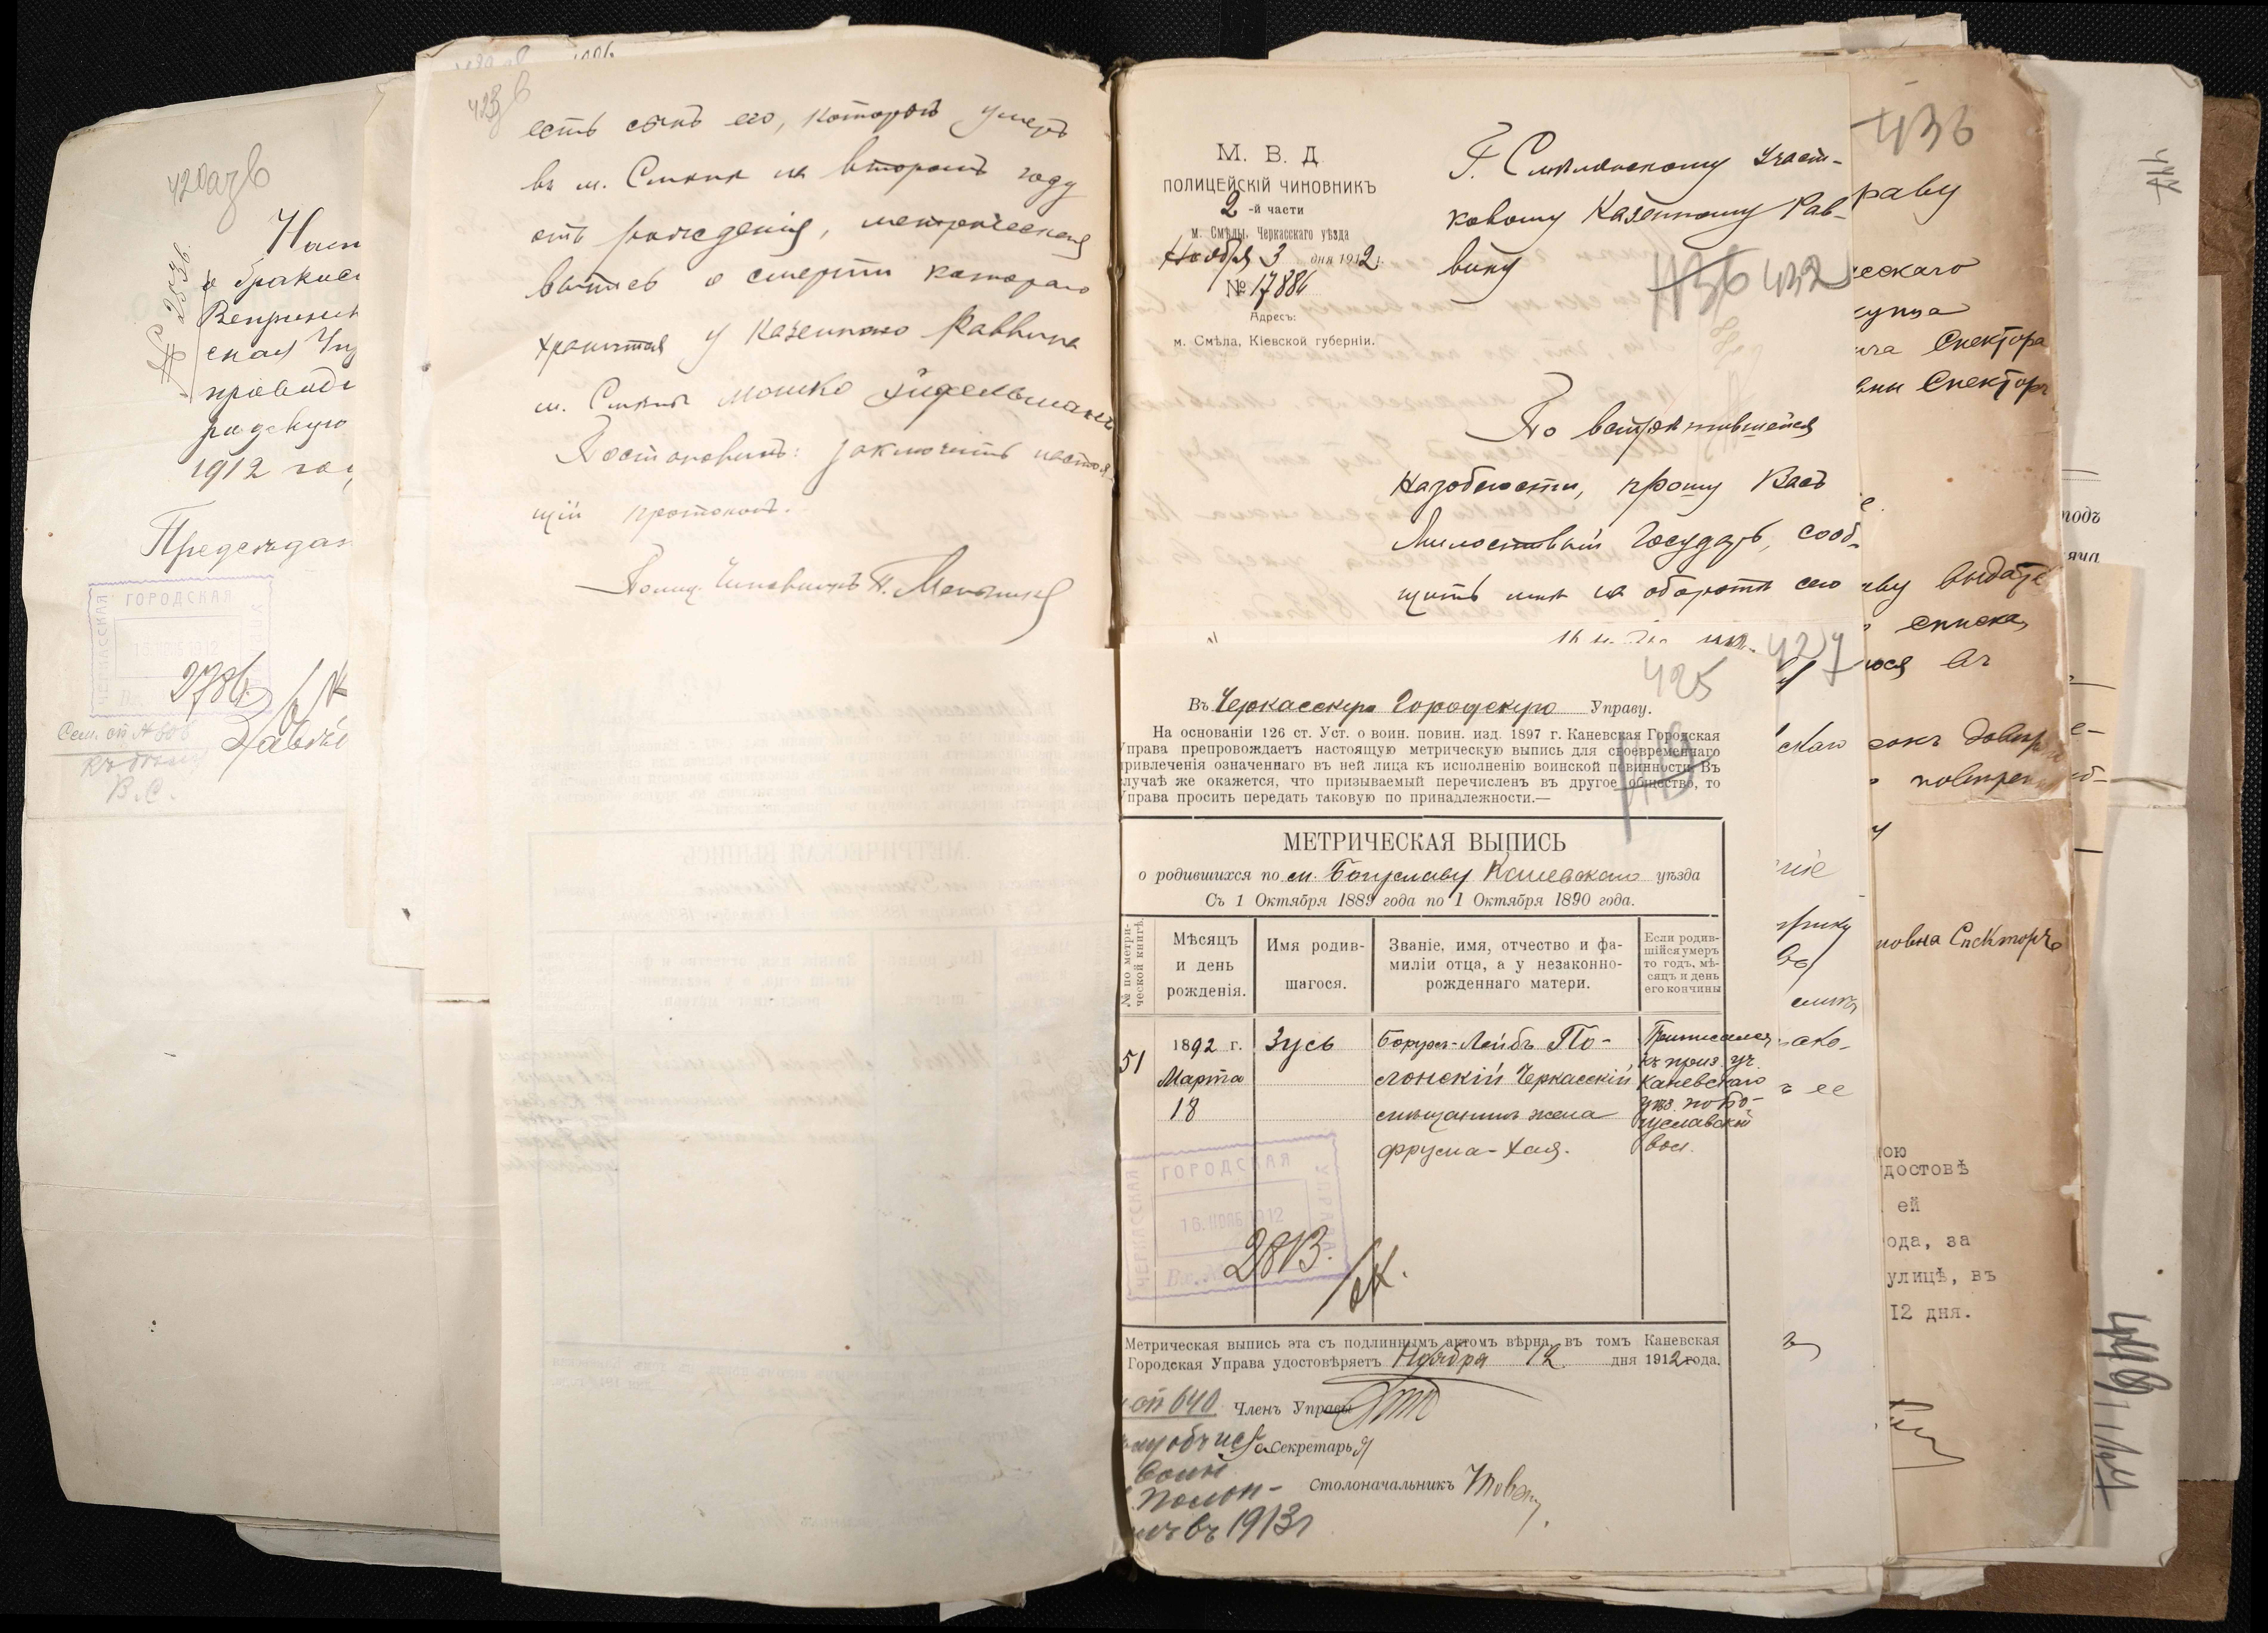 420 азв
№ 2536
Наст
о бракос
ская Упр
проводи
родскую
1912 год
Председат
ГОРОДСКАЯ
ЧЕРКАССКАЯ
УПРАВА
16. НОЯБ 1912
Вх. №
2786
Сем. сп № 806
В. С.
423 в
есть сынъ его, который умеръ
въ м. Смѣлѣ на второмъ году
отъ рожденія, метрическая
выпись о смерти котораго
хранится у Казеннаго Раввина
м. Смѣлы Мошко Эйдельмана
Постановилъ: заключить настоя-
щій протоколъ.
Полиц. Чиновникъ
М. В. Д.
ПОЛИЦЕЙСКІЙ ЧИНОВНИКЪ
2 -й части
м. Смѣлы, Черкасскаго уѣзда
Ноября 3 дня 1912 г.
№ 17884
Адресъ:
м. Смѣла, Кіевской губерніи.
Г. Смѣлянскому Участ-
ковому Казенному Рав-
вину
436 432
По встрѣтившейся
надобности, прошу Васъ
Милостивый Государь, сооб-
щить мнѣ на оборотѣ сего
427
425
Въ Черкасскую Городскую Управу.
На основаніи 126 ст. Уст. о воин. повин. изд. 1897 г. Каневская Городская
Управа препровождаетъ настоящую метрическую выпись для своевременнаго
привлеченія означеннаго въ ней лица къ исполненію воинской повинности. Въ
случаѣ же окажется, что призываемый перечисленъ въ другое общество, то
Управа просить передать таковую по принадлежности.—
МЕТРИЧЕСКАЯ ВЫПИСЬ
о родившихся по м. Богуславу Каневскаго уѣзда
Съ 1 Октября 1889 года по 1 Октября 1890 года.
№ по метри-
ческой книгѣ.
Мѣсяцъ
и день
рожденія.
Имя родив-
шагося.
Званіе, имя, отчество и фа-
миліи отца, а у незаконно-
рожденнаго матери.
Если родив-
шійся умеръ
то годъ, мѣ-
сяцъ и день
его кончины
51
1892 г.
Марта
18
Зусь
Борухъ-Лейбъ По-
лонскій Черкасскій
мѣщанинъ жена
Фрума-Хая.
Приписался
къ приз. уч.
Каневскаго
уѣз. по Бо-
гуславской
вол.
ГОРОДСКАЯ
ЧЕРКАССКАЯ
УПРАВА
16. НОЯБ 1912
Вх. №
2813.
Метрическая выпись эта съ подлиннымъ актомъ вѣрна, въ томъ Каневская
Городская Управа удостовѣряетъ Ноября 12 дня 1912 года.
сп 640
Членъ Управы
За Секретаря
Столоначальникъ
Полон-
въ 1913 г
436
раву
есскаго
купца
ича Спектора
вны Спекторъ
аву выдать
списка,
юся въ
скаго
довѣр
повѣрен
ніе
ако-
ъ ее
новна Спекторъ
ною
достовѣ
ей
ода, за
улицѣ, въ
12 дня.
годъ